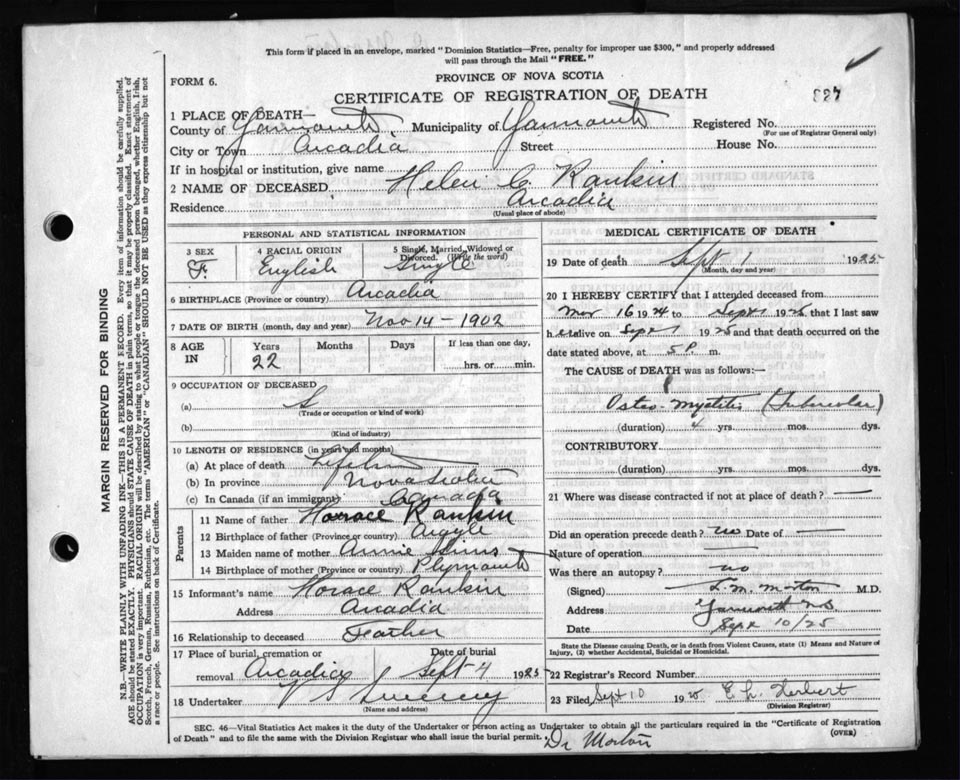 This form if placed in an envelope, marked "Dominion Statistics—Free, penalty for improper use $300," and properly addressed
will pass through the Mail "FREE."
FORM 6.
PROVINCE OF NOVA SCOTIA
CERTIFICATE OF REGISTRATION OF DEATH
827
1 PLACE OF DEATH—
County of Yarmouth Municipality of Yarmouth Registered No.
(For use of Registrar General only)
City or Town Arcadia Street House No.
If in hospital or institution, give name
2 NAME OF DECEASED Helen C. Rankin
Residence Arcadia
(Usual place of abode)
PERSONAL AND STATISTICAL INFORMATION
3 SEX 4 RACIAL ORIGIN 5 Single, Married, Widowed or
Divorced. (Write the word)
F. English Single
6 BIRTHPLACE (Province or country) Arcadia
7 DATE OF BIRTH (month, day and year) Nov 14 - 1902
8 AGE IN Years Months Days If less than one day,
22 hrs. or min.
9 OCCUPATION OF DECEASED
(a)
(Trade or occupation or kind of work)
(b)
(Kind of industry)
10 LENGTH OF RESIDENCE (in years and months)
(a) At place of death Lifetime
(b) In province Nova Scotia
(c) In Canada (if an immigrant) Canada
Parents
11 Name of father Horace Rankin
12 Birthplace of father (Province or country) Argyle
13 Maiden name of mother Annie
14 Birthplace of mother (Province or country) Plymouth
15 Informant's name Horace Rankin
Address Arcadia
16 Relationship to deceased Feather
17 Place of burial, cremation or Date of burial
removal Arcadia Sept 4 1925
18 Undertaker V S Sweeny
(Name and address)
MEDICAL CERTIFICATE OF DEATH
19 Date of death Sept 1 1925
(Month, day and year)
20 I HEREBY CERTIFY that I attended deceased from
Mar 16 1924 to Sept 1 1925 that I last saw
her alive on Sept 1 1925 and that death occurred on the
date stated above, at 5 P. m.
The CAUSE of DEATH was as follows:—
Osteo-Myelitis (Tubercular)
(duration) 4 yrs. mos. dys.
CONTRIBUTORY
(duration) yrs. mos. dys.
21 Where was disease contracted if not at place of death? —
Did an operation precede death? no Date of —
Nature of operation —
Was there an autopsy? no
(Signed) L. M. Morton M.D.
Address Yarmouth NS
Date Sept 10/25
State the Disease causing Death, or in death from Violent Causes, state (1) Means and Nature of
Injury, (2) whether Accidental, Suicidal or Homicidal.
22 Registrar's Record Number
23 Filed Sept 10 1925 E. L. Herbert
(Division Registrar)
SEC. 46—Vital Statistics Act makes it the duty of the Undertaker or person acting as Undertaker to obtain all the particulars required in the "Certificate of Registration
of Death" and to file the same with the Division Registrar who shall issue the burial permit.
(OVER)
Dr Morton
MARGIN RESERVED FOR BINDING
N.B.—WRITE PLAINLY WITH UNFADING INK—THIS IS A PERMANENT RECORD. Every item of information should be carefully supplied.
AGE should be stated EXACTLY. PHYSICIANS should STATE CAUSE OF DEATH in plain terms, so that it may be properly classified. Exact statement of
OCCUPATION is very important. RACIAL ORIGIN will be described by stating to what people or tongue the deceased person belonged, whether English, Irish,
Scotch, French, German, Russian, Ruthenian, etc. The terms "AMERICAN" or "CANADIAN" SHOULD NOT BE USED as they express citizenship but not
a race or people. See instructions on back of Certificate.